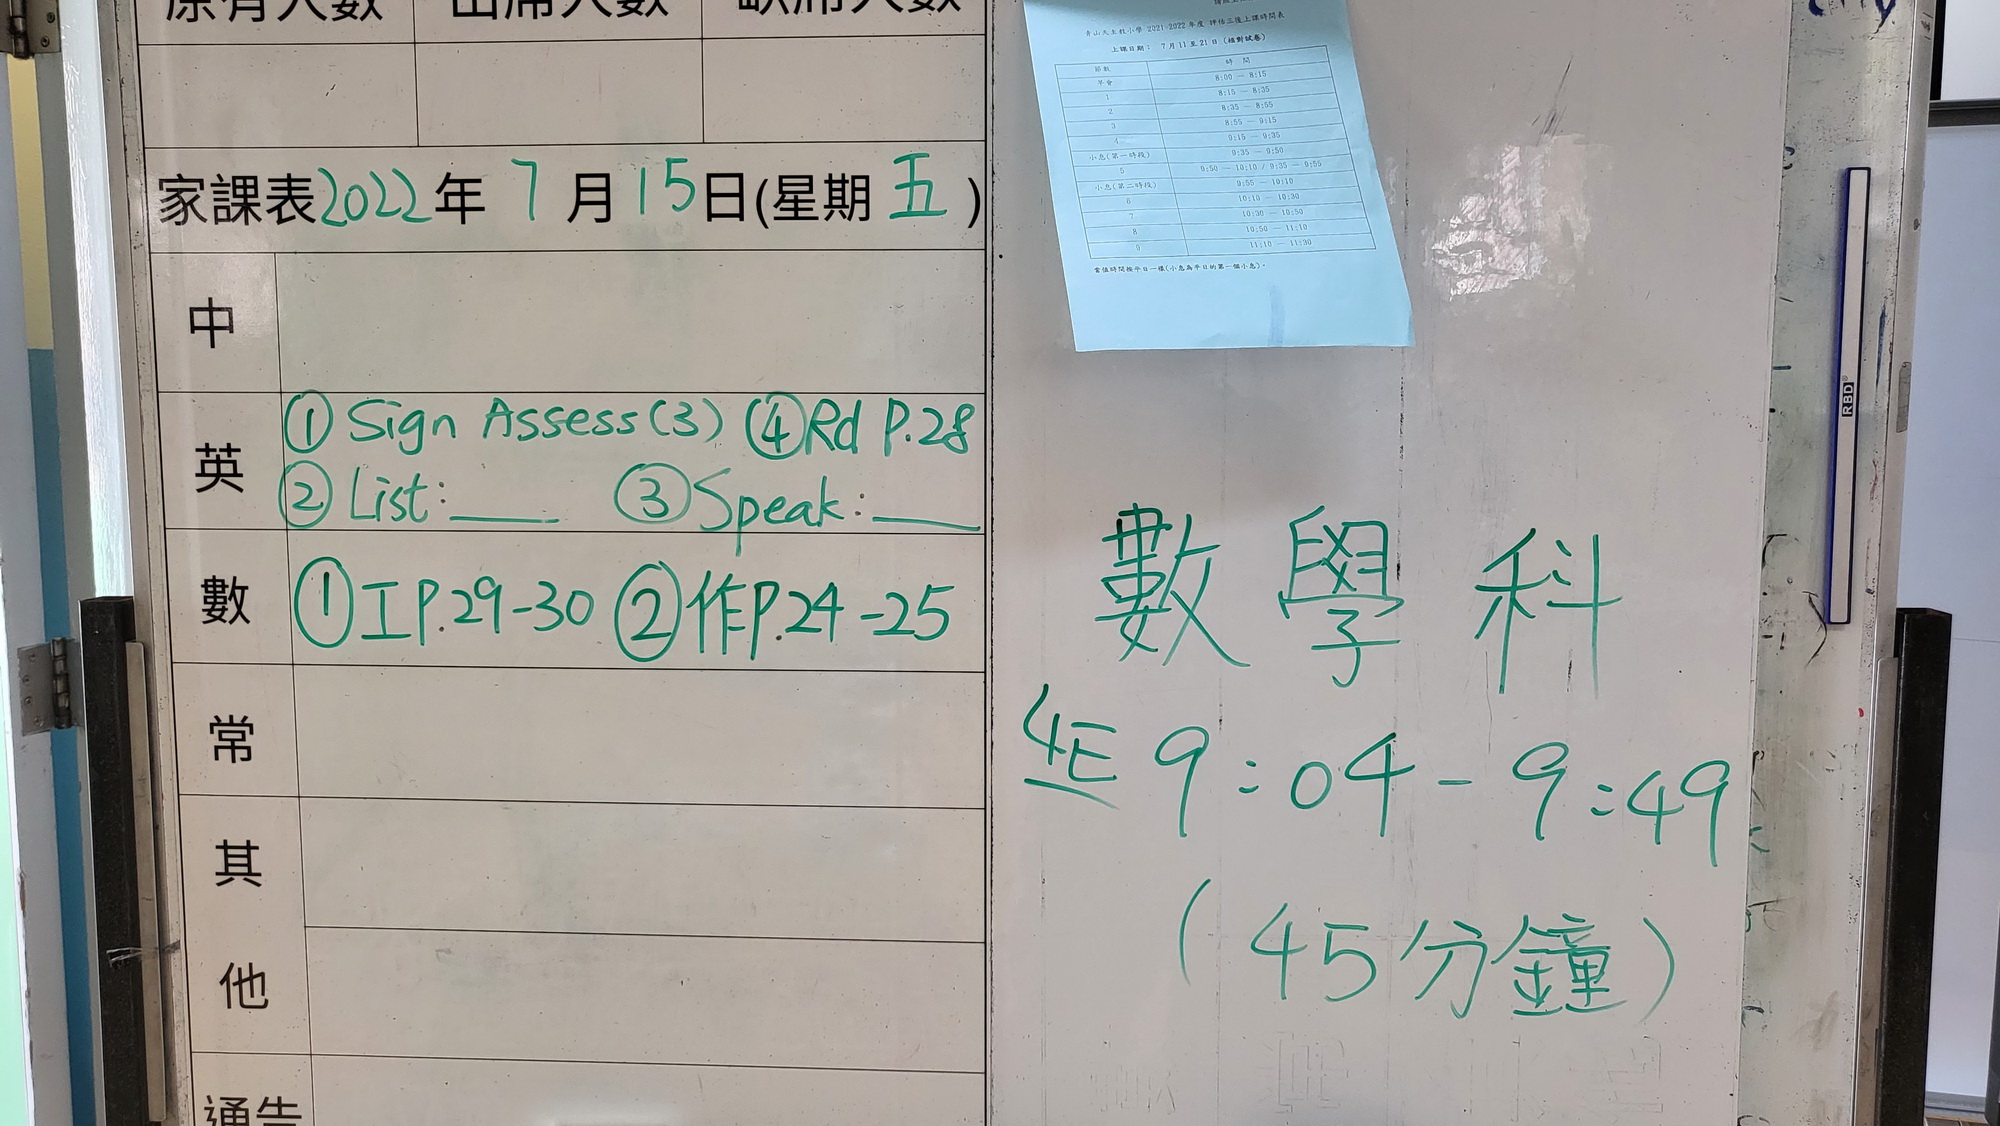 原有人數 出席人數 缺席人數
家課表2022年 7 月 15日(星期 五 )
中
英
① Sign Assess(3) ④Rd P.28
② List:___ ③Speak:___
數
①工P.29-30 ②作P.24-25
常
其
他
通告
青山天主教小學 2021-2022 年度 評估三後上課時間表
上課日期： 7月11至21日（核對試卷）
節數 時 間
早會 8:00 — 8:15
1 8:15 — 8:35
2 8:35 — 8:55
3 8:55 — 9:15
4 9:15 — 9:35
小息(第一時段) 9:35 — 9:50
5 9:50 — 10:10 / 9:35 — 9:55
小息(第二時段) 9:55 — 10:10
6 10:10 — 10:30
7 10:30 — 10:50
8 10:50 — 11:10
9 11:10 — 11:30
當值時間按平日一樣(小息為平日的第一個小息)。
數學科
4E 9:04-9:49
(45分鐘)
RBD